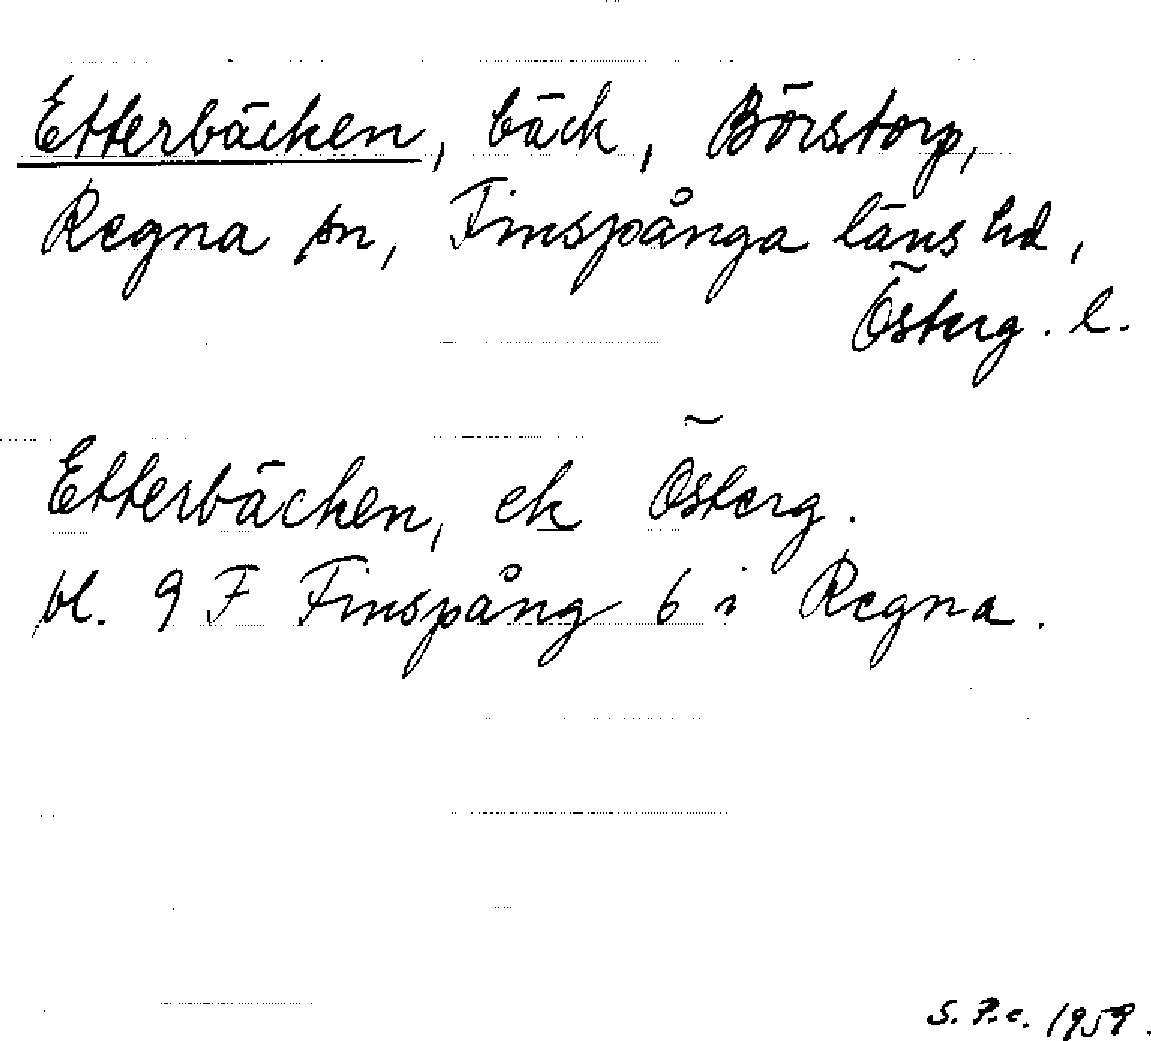 Etterbäcken, bäck, Börstorp,
Regna sn, Finspånga läns hd,
Österg. l.
Etterbäcken, ek Österg.
bl. 9 F Finspång 6 i Regna.
S. P.c. 1959.